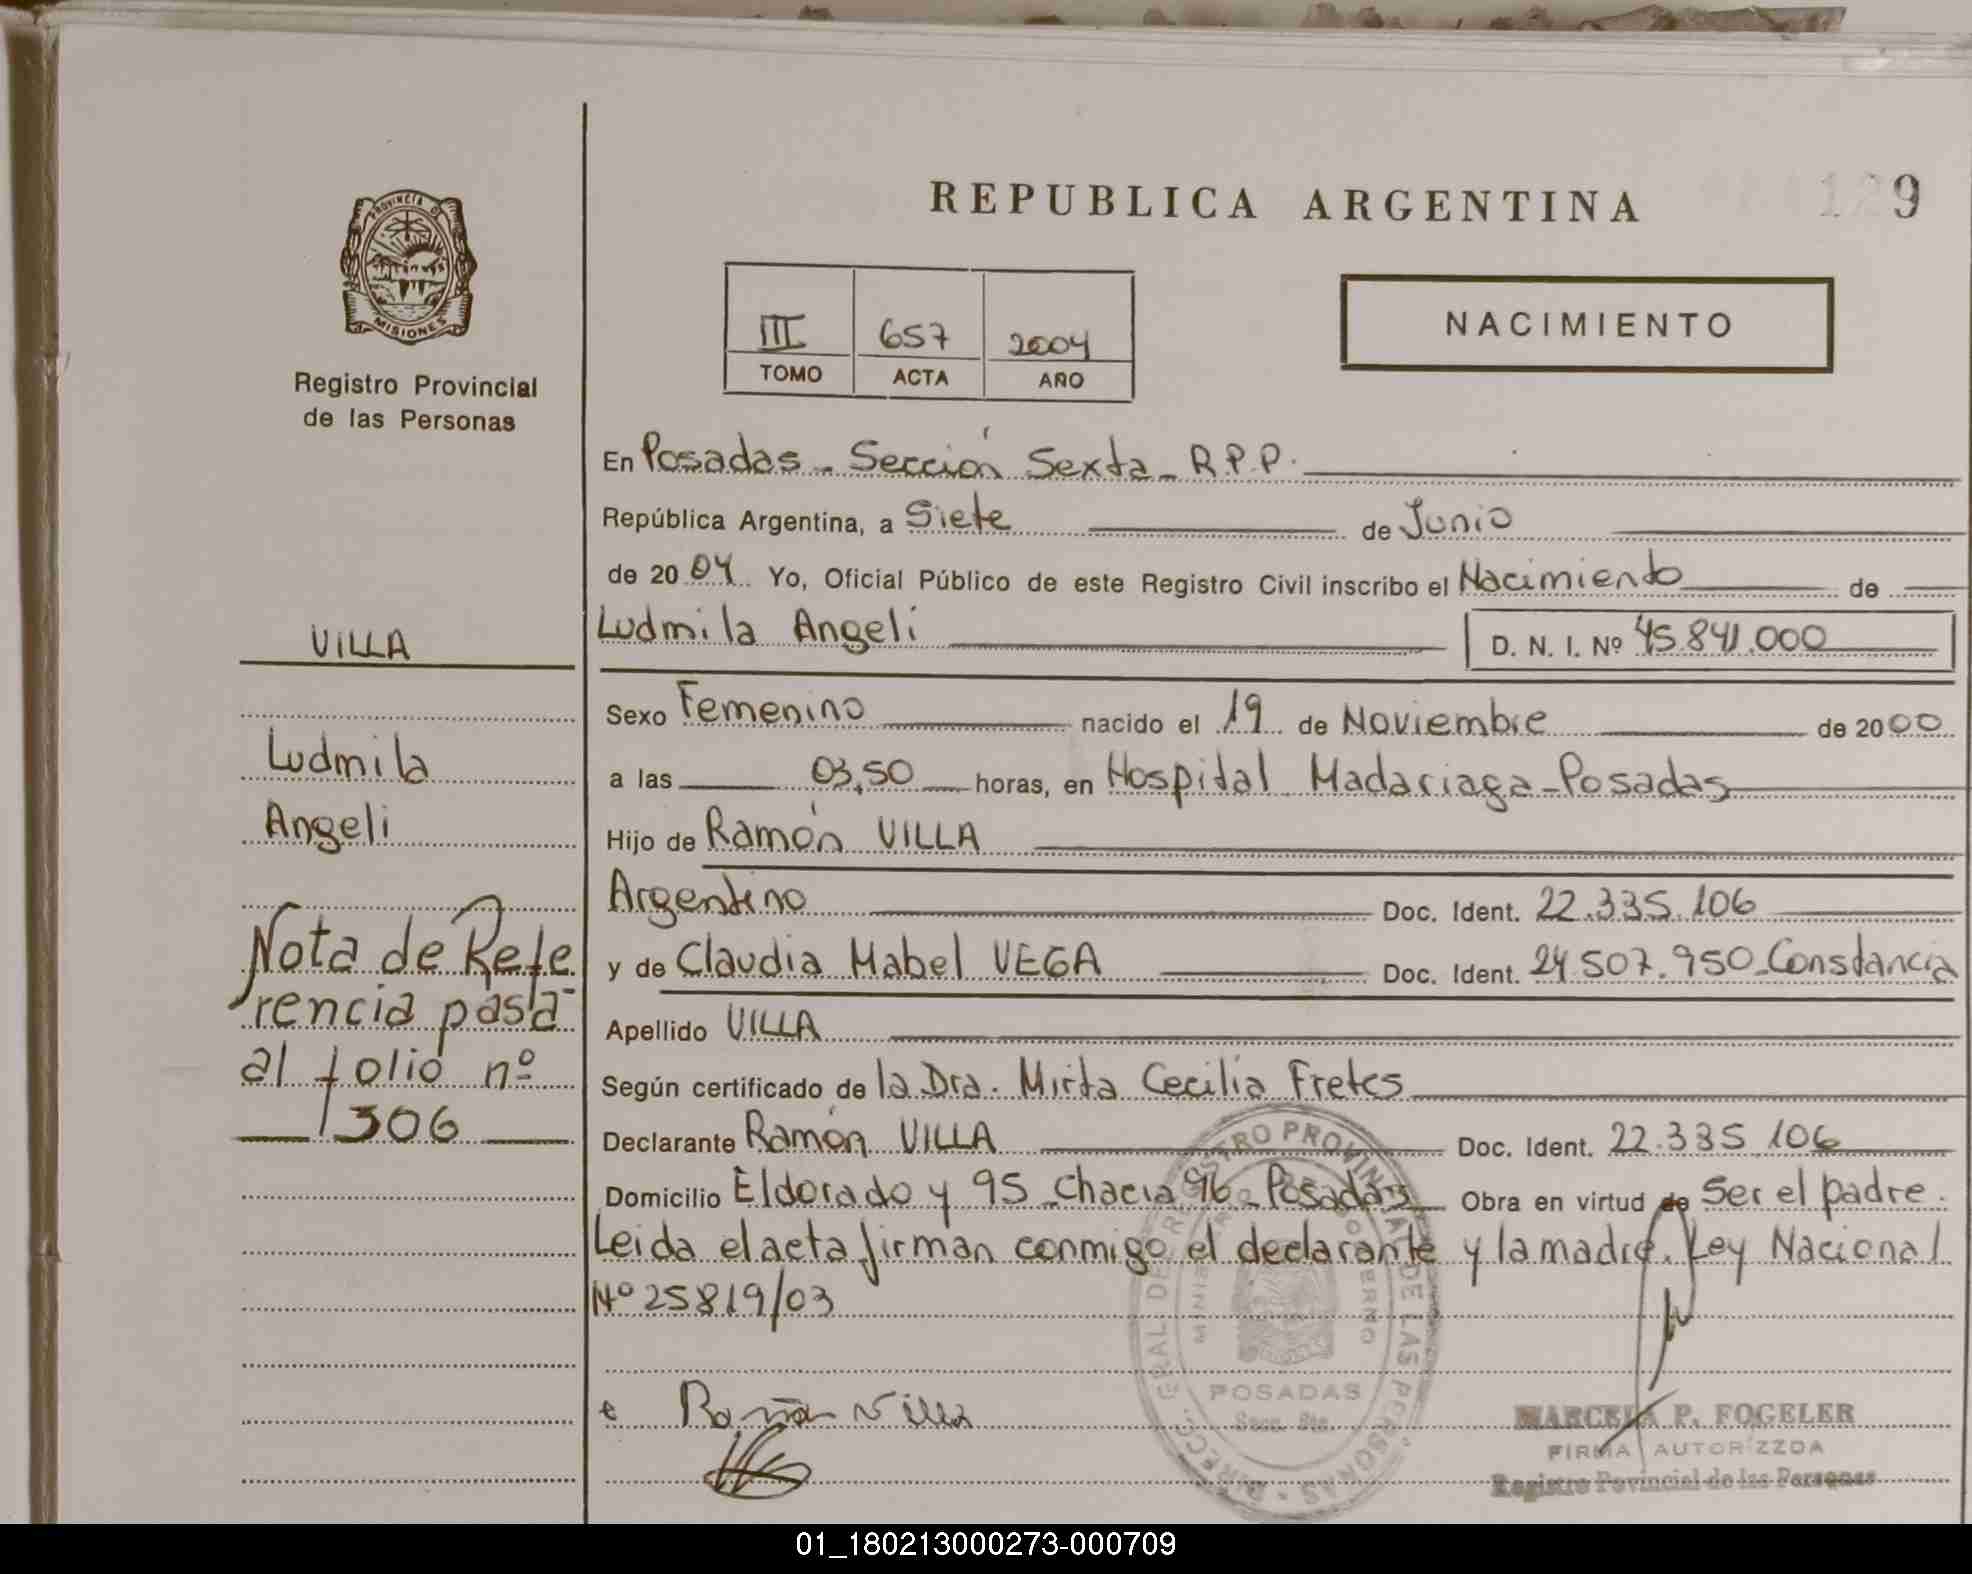 REPUBLICA ARGENTINA
129
PROVINCIA DE
MISIONES
Registro Provincial
de las Personas
III 657 2004
TOMO ACTA AÑO
NACIMIENTO
En Posadas - Sección Sexta - R.P.P.
República Argentina, a Siete de Junio
de 2004 Yo, Oficial Público de este Registro Civil inscribo el Nacimiento de
Ludmila Angeli D. N. I. Nº 45.841.000
Sexo Femenino nacido el 19 de Noviembre de 2000
a las 03,50 horas, en Hospital Madariaga - Posadas
Hijo de Ramón VILLA
Argentino Doc. Ident. 22.335.106
y de Claudia Mabel VEGA Doc. Ident. 24.507.950 - Constancia
Apellido VILLA
Según certificado de la Dra. Mirta Cecilia Fretes
Declarante Ramón VILLA Doc. Ident. 22.335.106
Domicilio Eldorado y 95 - Chacra 96 - Posadas Obra en virtud de Ser el padre.
Leida el acta firman conmigo el declarante y la madre. Ley Nacional
Nº 25819/03
VILLA
Ludmila
Angeli
Nota de Refe
rencia pasa
al folio nº
306
Ramón Villa
POSADAS
MARCELA P. FOGELER
FIRMA AUTORIZZDA
Registro Provincial de las Personas
01_180213000273-000709